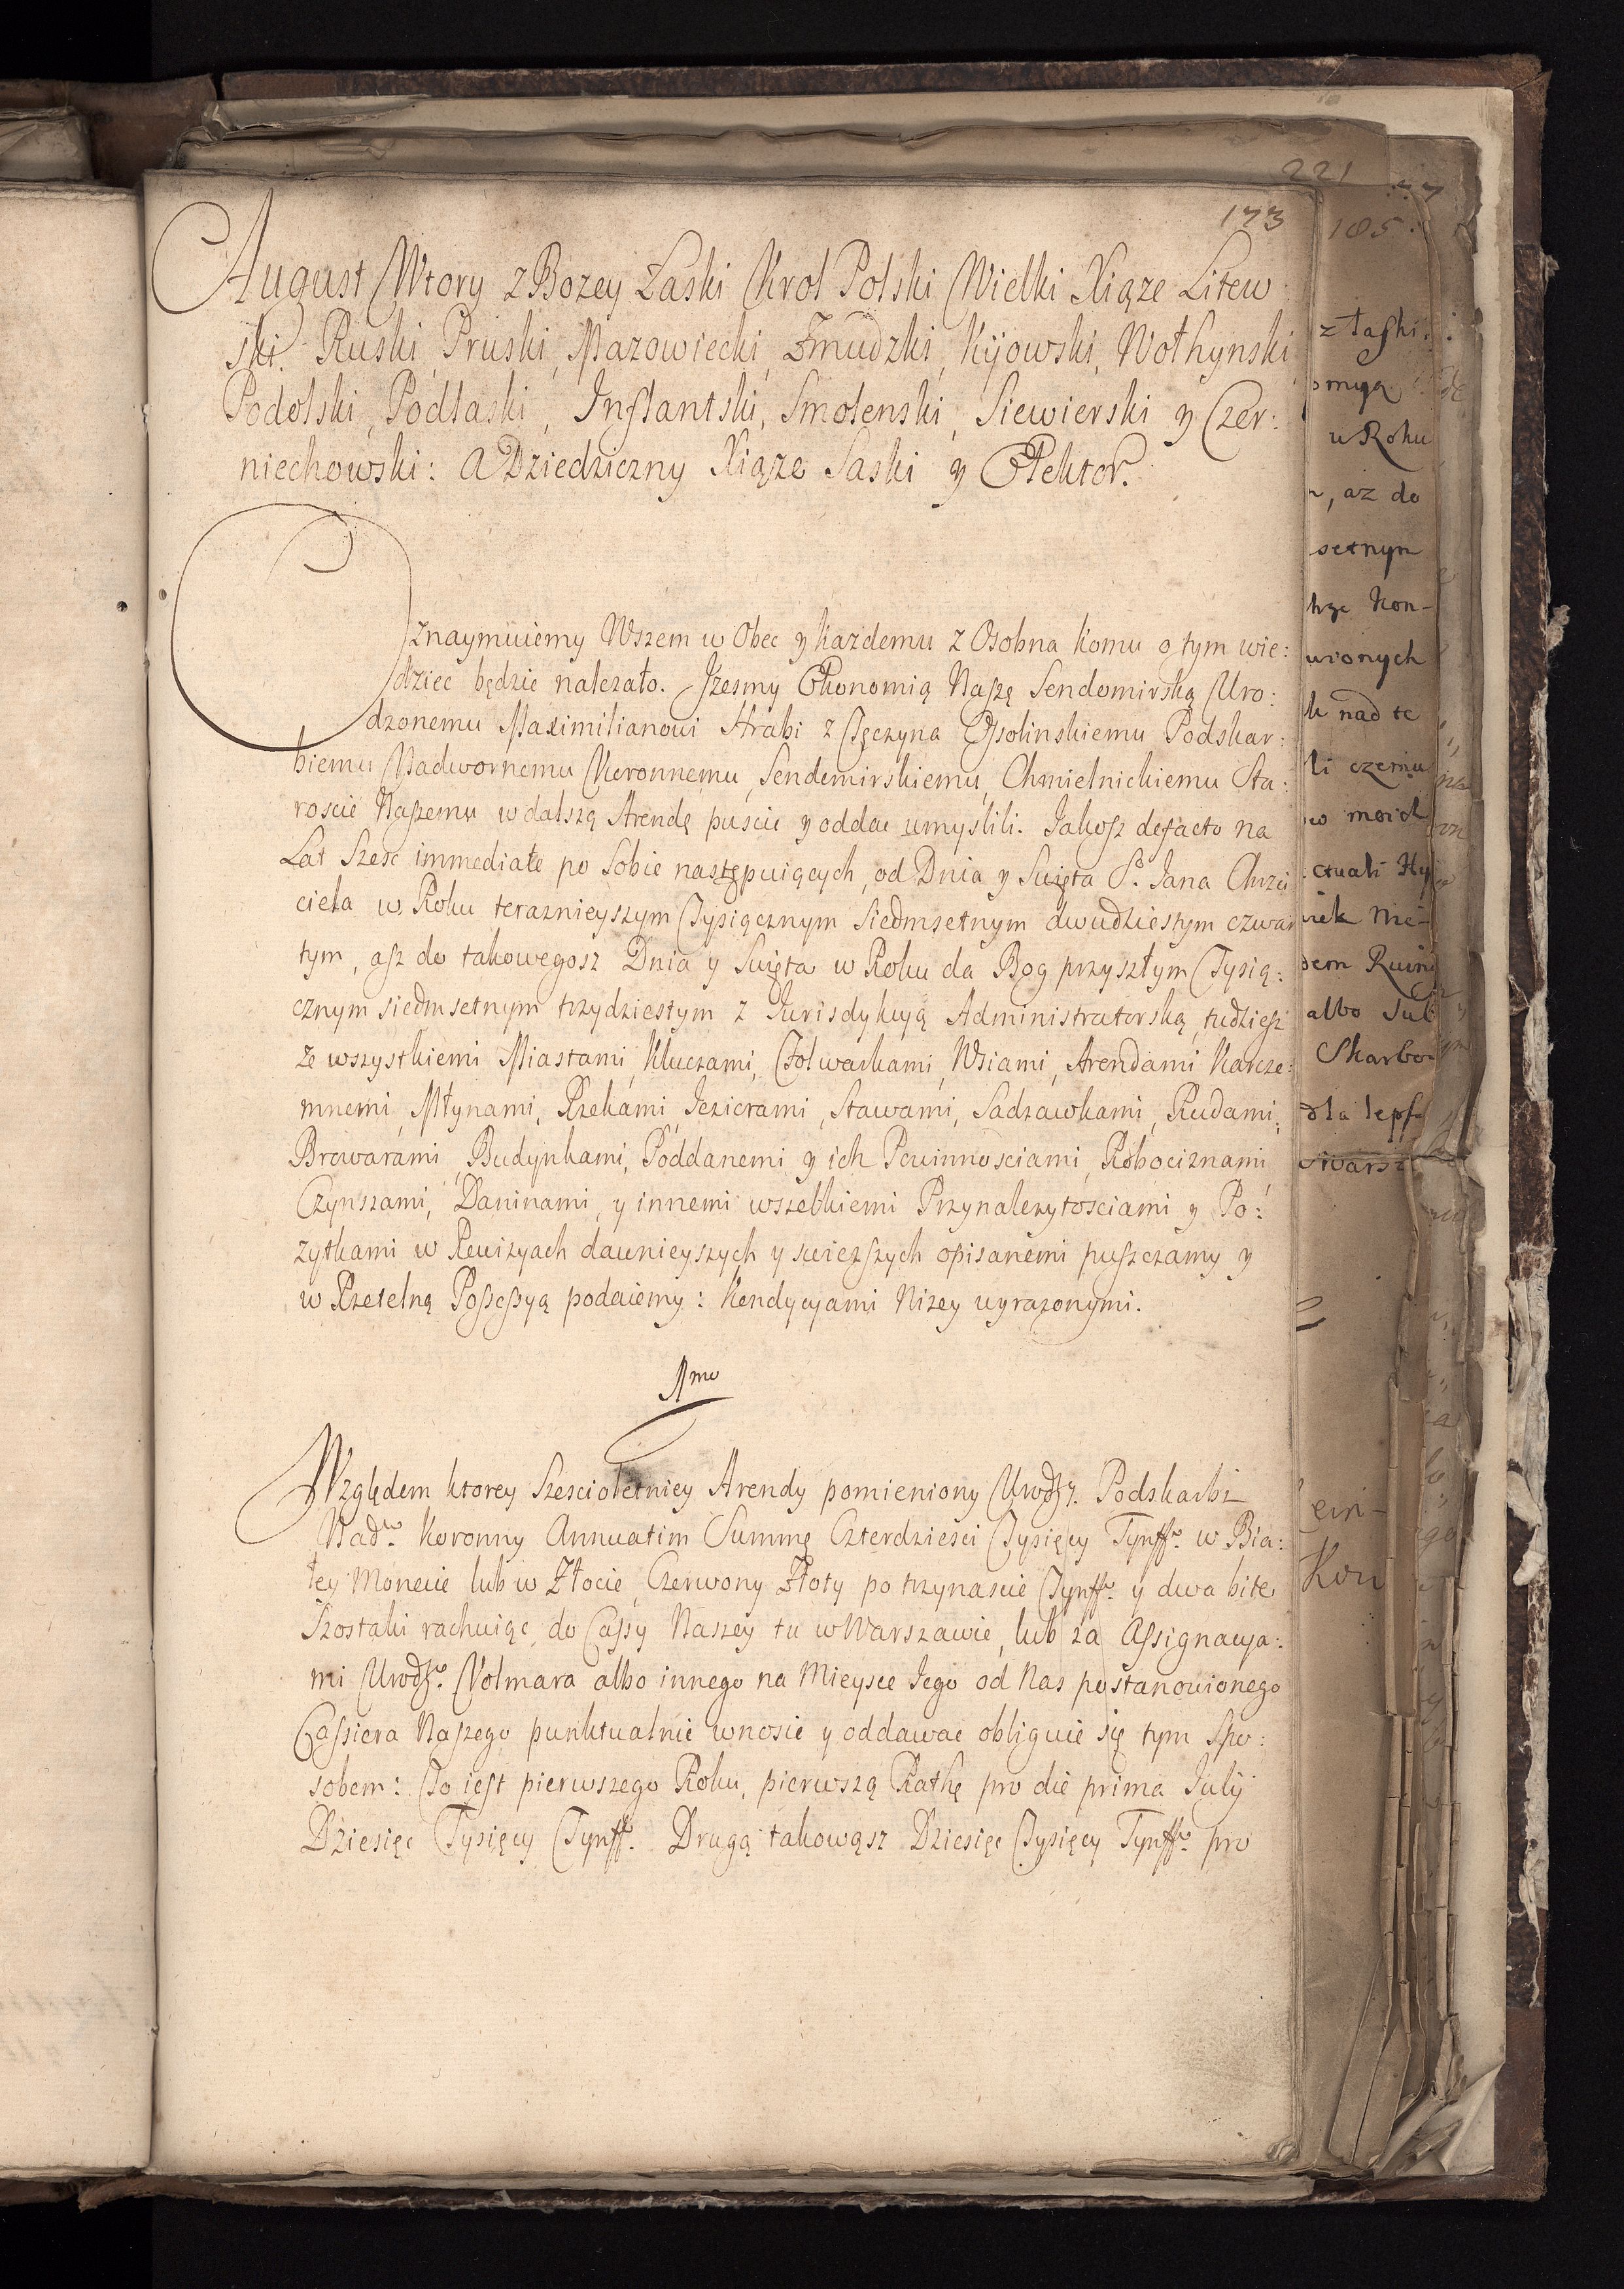 221
173
185.
August Wtory z Bozey Łaski Krol Polski Wielki Xiąze Litew
ski. Ruski, Pruski, Mazowiecki, Zmudzki, Kijowski, Wołhynski
Podolski, Podlaski, Inflantski, Smolenski, Siewierski y Czer:
niechowski: A Dziedziczny Xiąze Saski y Elektor.
Oznaymuiemy Wszem w Obec y każdemu z Osobna komu o tym wie:
dziec będzie nalezało. Jżesmy Ekonomią Naszę Sendomirską Uro:
dzonemu Maximilianowi Hrabi z Tęczyna Ossolinskiemu Podskar:
biemu Nadwornemu Koronnemu, Sendomirskiemu, Chmielnickiemu Sta:
roscie Naszemu w dalszą Arendę puscic y oddac umyslili. Jakosz defacto na
Lat Szesc immediate po Sobie następuiących, od Dnia y Swięta S. Jana Chrzci
ciela w Roku teraznieyszym Tysiącznym siedmsetnym dwudziestym czwar
tym, asz do takowegosz Dnia y Swięta w Roku da Bog przyszłym Tysią:
cznym siedmsetnym trzydziestym z Jurisdykcyą Administratorską, tudziesz
ze wszystkiemi Miastami, Kluczami, Folwarkami, Wsiami, Arendami Karcze:
mnemi, Młynami, Rzekami, Jezierami, Stawami, Sadzawkami, Rudami,
Browarami, Budynkami, Poddanemi y ich Powinnosciami, Robociznami
Czynszami, Daninami, y innemi wszelkiemi Przynalezytosciami y Po:
zytkami w Rewizyach dawnieyszych y swieższych opisanemi puszczamy y
w Rzetelną Possessyą podaiemy: Kondycyami Nizey wyrazonymi.
1mo
Względem ktorey Szescioletniey Arendy pomieniony Urodz. Podskarbi
Nadw. Koronny Annuatim Summę Czterdziesci Tysięcy Tynffw. w Bia:
łey Monecie lub w Złocie, Czerwony Złoty po trzynascie Tynffw. y dwa bite
Szostaki rachuiąc, do Cassy Naszey tu w Warszawie, lub za Assignacya:
mi Urodz. Volmara albo innego na Mieysce Jego od Nas postanowionego
Cassiera Naszego punktualnie wnosic y oddawac obliguie się tym Spo:
sobem: To iest pierwszego Roku, pierwszą Rathę pro die prima July
Dziesięc Tysięcy Tynff. Drugą takowąsz Dziesięc Tysięcy Tynffw. pro
z łaski
w Roku
, az do
setnym
Kon-
wionych
nad te
czemu
moich
albo
Skarbo
dla